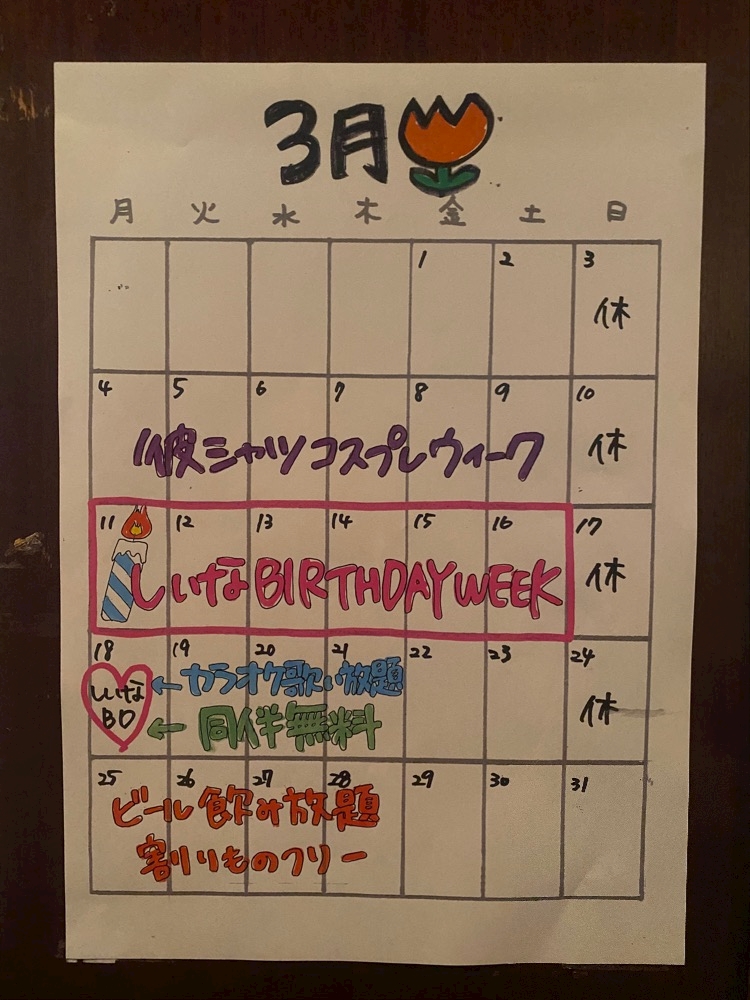 3月
月 火 水 木 金 土 日
1 2 3
休
4 5 6 7 8 9 10
彼シャツコスプレウィーク 休
11 12 13 14 15 16 17
しいなBIRTHDAY WEEK 休
18 19 20 21 22 23 24
しいな ←カラオケ歌い放題
BD ←同伴無料 休
25 26 27 28 29 30 31
ビール飲み放題
割りものフリー